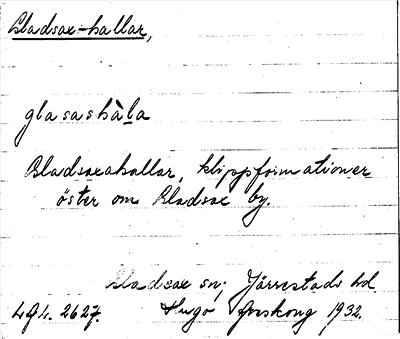 Gladsax-hallar,
glasashàla
Gladsaxahallar, klippformationer
öster om Gladsax by.
Gladsax sn; Järrestads hd.
LAL. 2627. Hugo Areskoug 1932.